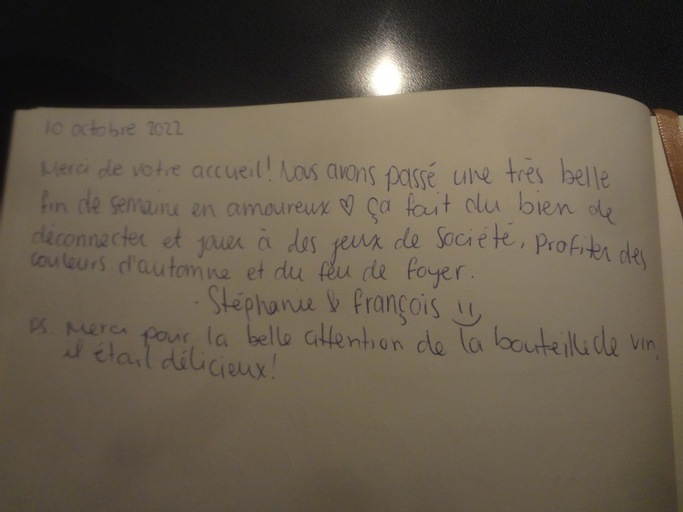 10 octobre 2022
Merci de votre accueil! Nous avons passé une très belle
fin de semaine en amoureux ♡ ça fait du bien de
déconnecter et jouer à des jeux de société, profiter des
couleurs d'automne et du feu de foyer.
- Stéphanie & François =)
PS. Merci pour la belle attention de la bouteille de vin,
il était délicieux!